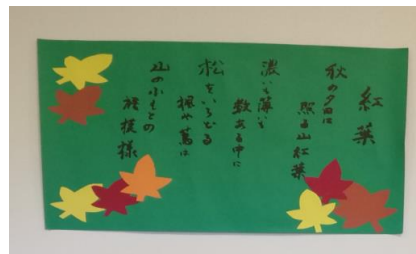 紅葉
秋の夕日に
照る山紅葉
濃いも薄いも
数ある中に
松をいろどる
楓や蔦は
山のふもとの
裾模様